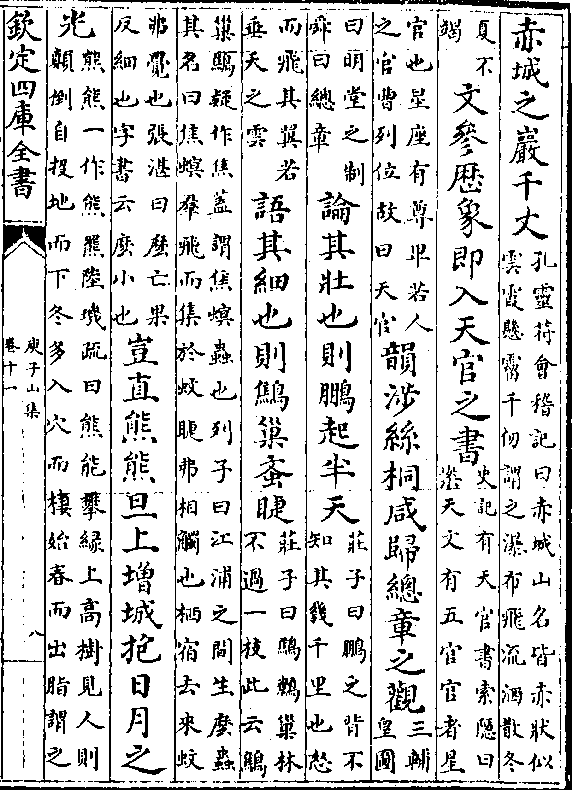 赤城之巖千丈孔靈符會稽記曰赤城山名皆赤狀似
雲霞懸霤千仞謂之瀑布飛流洒散冬
夏不
竭
文參歴象即入天官之書史記有天官書索隱曰
案天文有五官官者星
官也星座有尊卑若人
之官曹列位故曰天官
韻涉絲桐咸歸總章之觀三輔
皇圖
曰明堂之制
舜曰總章
論其壯也則鵬起半天莊子曰鵬之背不
知其幾千里也怒
而飛其翼若
垂天之雲
語其細也則鷦巢蚉睫莊子曰鷦鷯巢林
不過一枝此云鷦
巢鷦疑作焦蓋謂焦螟蟲也列子曰江浦之間生麽蟲
其名曰焦螟羣飛而集於蚊睫弗相觸也栖宿去來蚊
弗覺也張湛曰麽亡果
反細也字書云麽小也
豈直熊熊旦上增城抱日月之
光熊熊一作熊羆陸璣疏曰熊能攀緣上高樹見人則
顛倒自投地而下冬多入穴而棲始春而出脂謂之
欽定四庫全書
庾子山集
卷十一
八